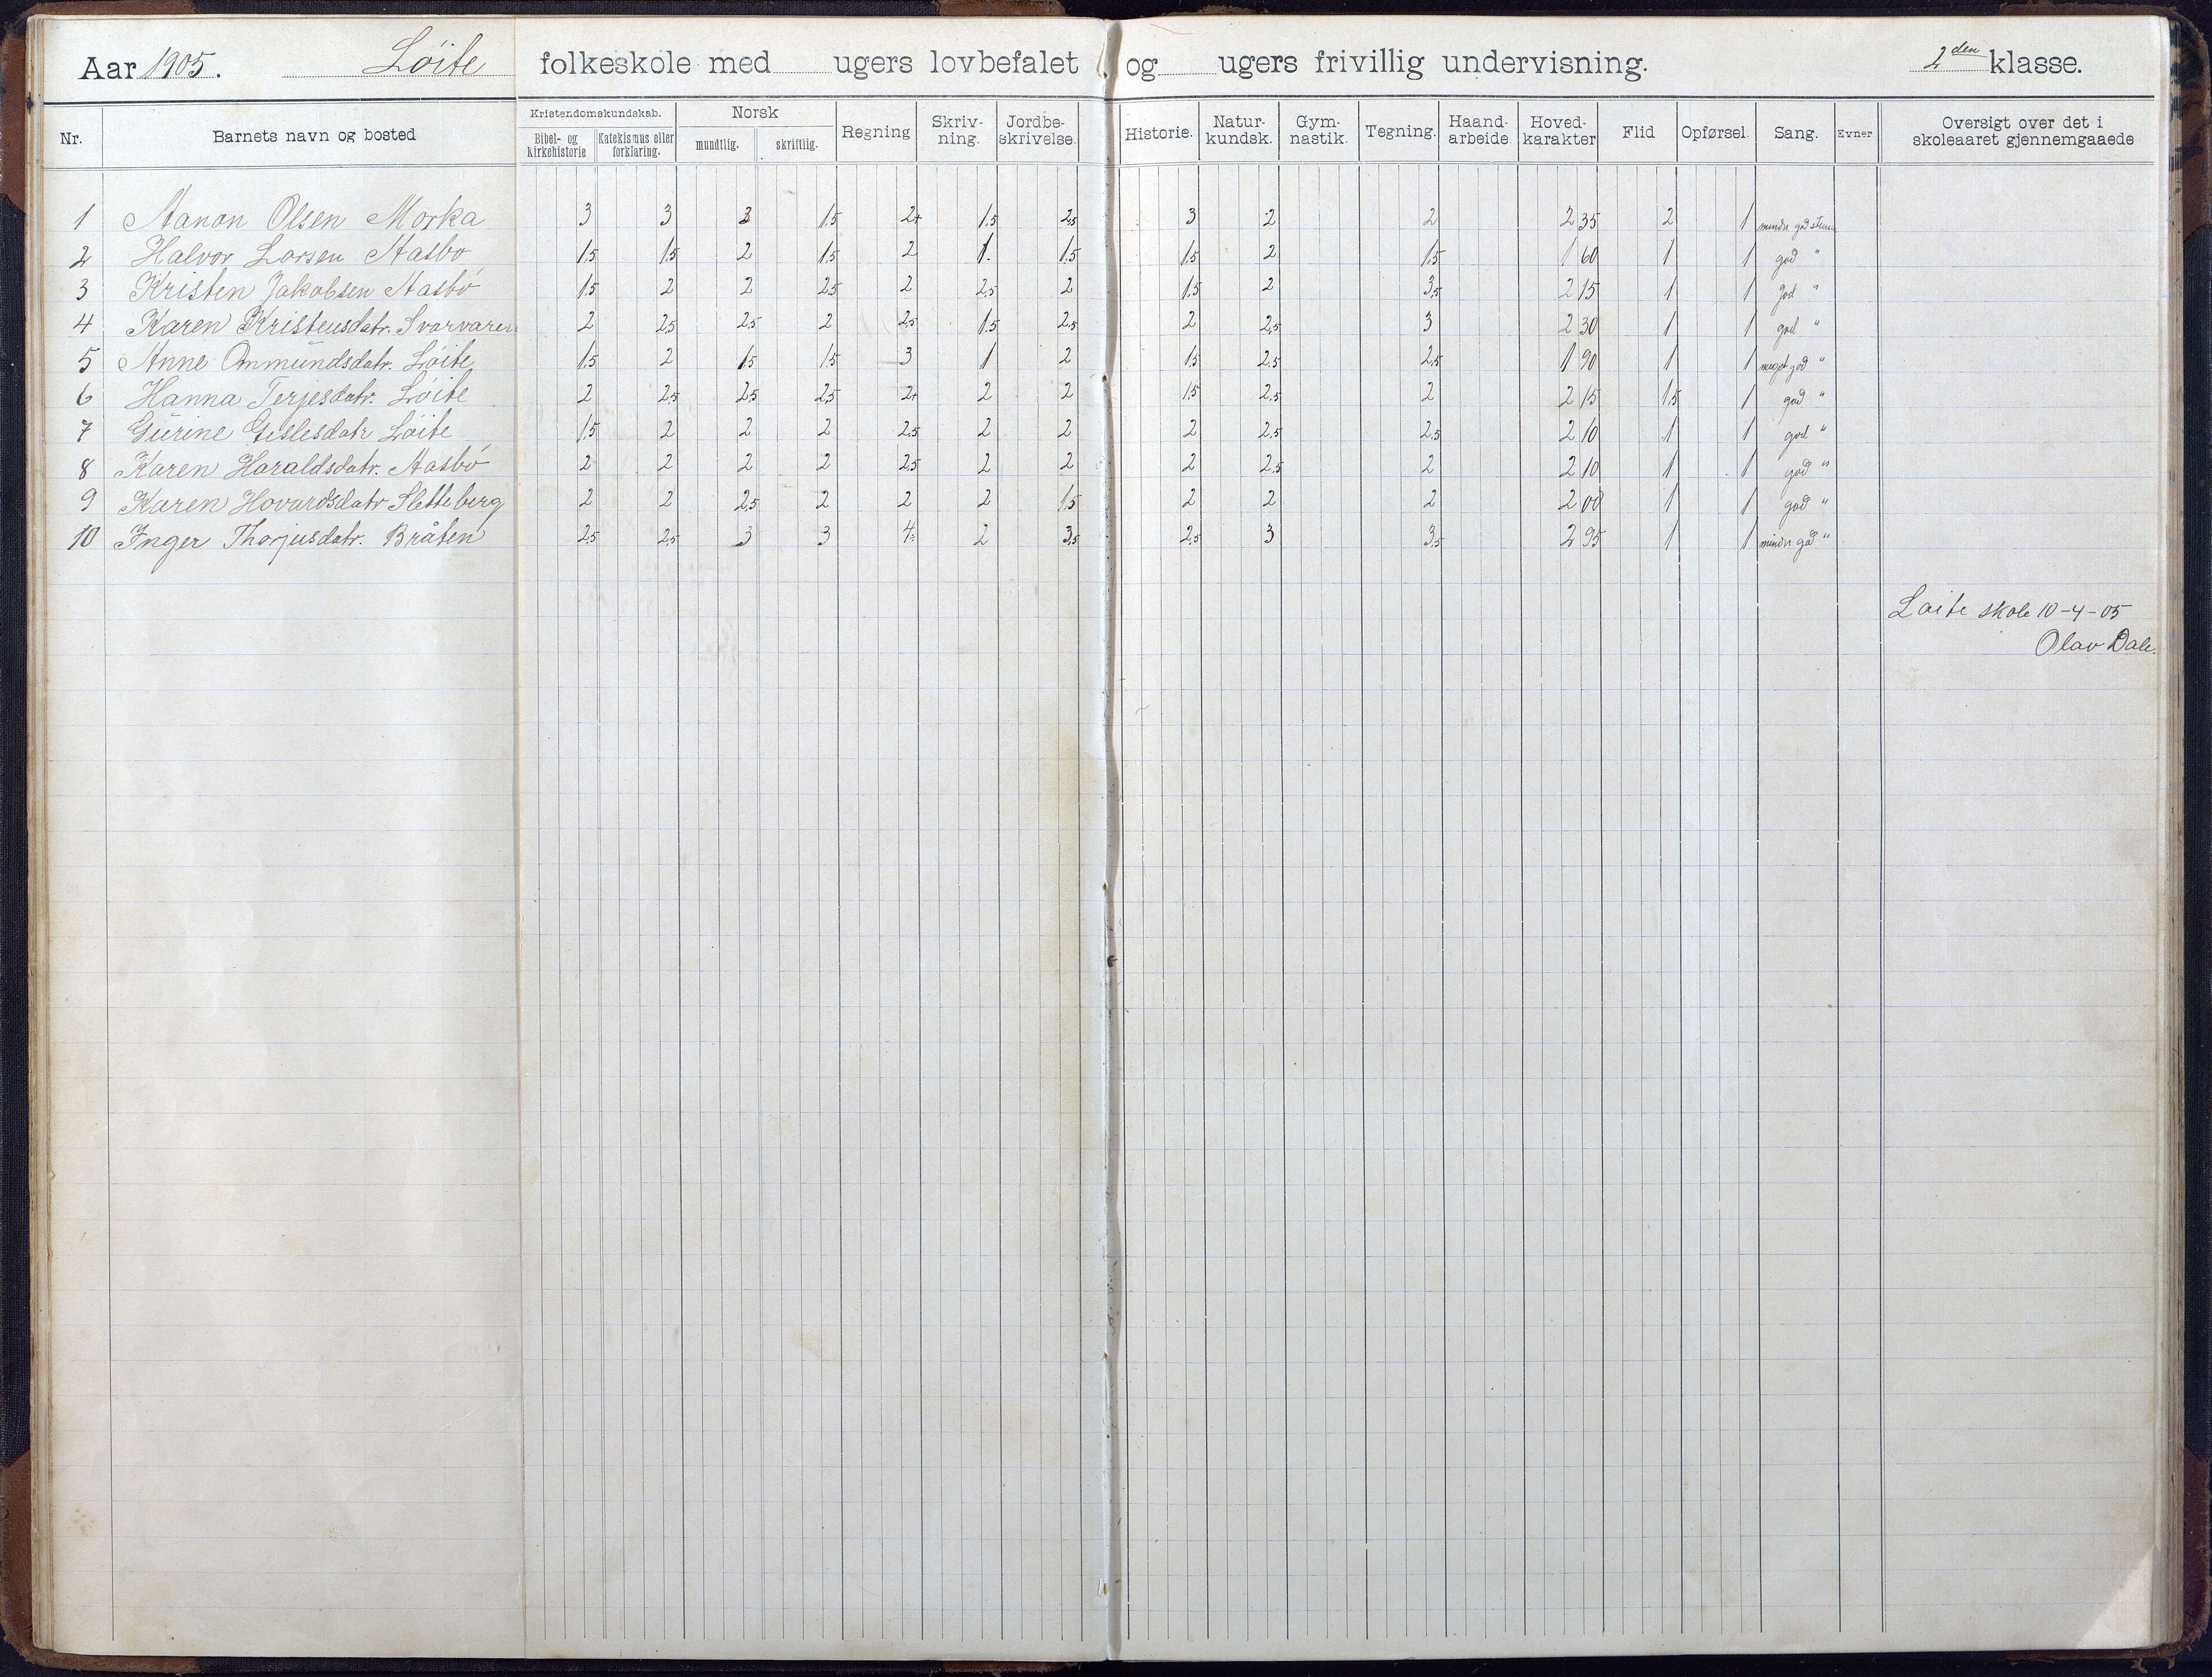 Aar 1905. Löite folkeskole med ugers lovbefalet og ugers frivillig undervisning. 2den klasse.
Nr. Barnets navn og bosted Kristendomskundskab. Bibel- og Kirkehistorie Katekismus eller forklaring. Norsk mundtlig. skriftlig. Regning Skriv-ning. Jordbe-skrivelse. Historie. Natur-kundsk. Gym-nastik. Tegning. Haand-arbeide Hoved-karakter Flid Opførsel. Sang. Evner Oversigt over det i skoleaaret gjennemgaaede
1 Aanon Olsen Morka 3 3 3 1,5 2+ 1,5 2,5 3 2 2 2 35 2 1 mindr god stemme
2 Halvor Larsen Aasbö 1,5 1,5 2 1,5 2 1. 1,5 1,5 2 1,5 1 60 1 1 god "
3 Kristen Jakobsen Aasbö 1,5 2 2 2,5 2 2,5 2 1,5 2 3,5 2 15 1 1 god "
4 Karen Kristensdatr. Svarvaren 2 2,5 2,5 2 2,5 1,5 2,5 2 2,5 3 2 30 1 1 god "
5 Anne Onmundsdatr. Löite 1,5 2 1,5 1,5 3 1 2 1,5 2,5 2,5 1 90 1 1 meget god "
6 Hanna Terjesdatr. Löite 2 2,5 2,5 2,5 2+ 2 2 1,5 2,5 2 2 15 1,5 1 god "
7 Gurine Gislesdatr Löite 1,5 2 2 2 2,5 2 2 2 2,5 2,5 2 10 1 1 god "
8 Karen Haraldsdatr. Aasbö 2 2 2 2 2,5 2 2 2 2,5 2 2 10 1 1 god "
9 Karen Hovardsdatr Sletteberg 2 2 2,5 2 2 2 1,5 2 2 2 2 00 1 1 god "
10 Inger Thorjusdatr. Bråten 2,5 2,5 3 3 4 2 3,5 2,5 3 3,5 2 95 1 1 mindr god "
Löite skole 10-4-05
Olav Dale.